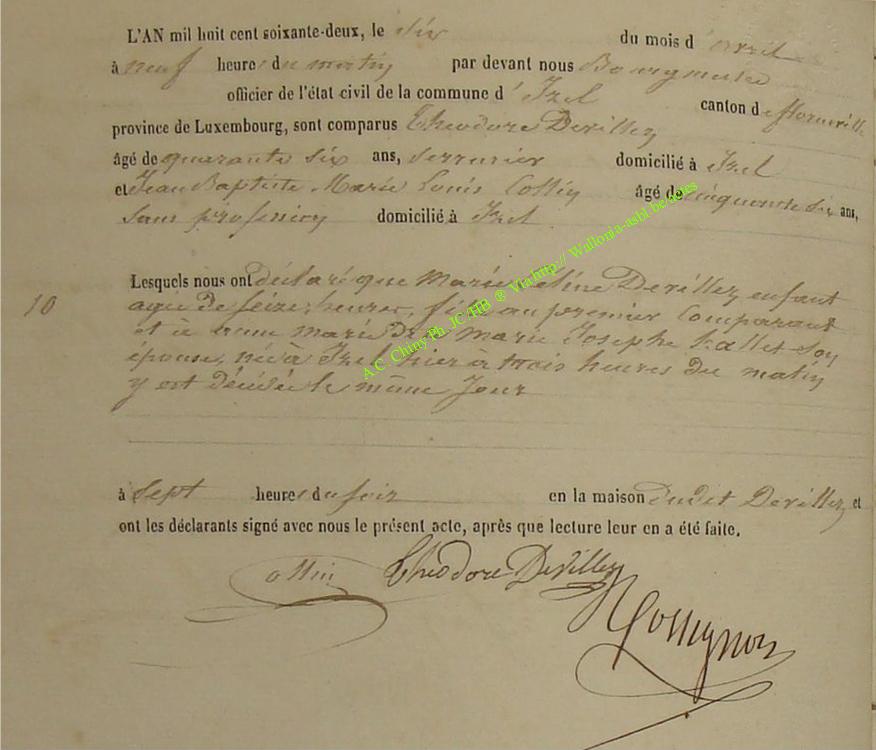 L'AN mil huit cent soixante-deux, le six du mois d'avril
à neuf heures du matin par devant nous Bourgmestre
officier de l'état civil de la commune d'Izel canton de florenville
province de Luxembourg, sont comparus Théodore Devillez
âgé de quarante six ans, serrurier domicilié à Izel
et Jean Baptiste Marie Louis Collin âgé de cinquante six ans,
sans profession domicilié à Izel
Lesquels nous ont déclaré que Marie Devillez enfant
10
agée de seize heures, fille au premier Comparant
et à Marie Joseph hallet son
épouse, née à Izel hier à trois heures du matin
y est décédée le même Jour
à Sept heures du soir en la maison dudit Devillez et
ont les déclarants signé avec nous le présent acte, après que lecture leur en a été faite.
Théodore Devillez
A.C. Chiny Ph JC/HB ® Via http:// Wallonia-asbl.be/actes